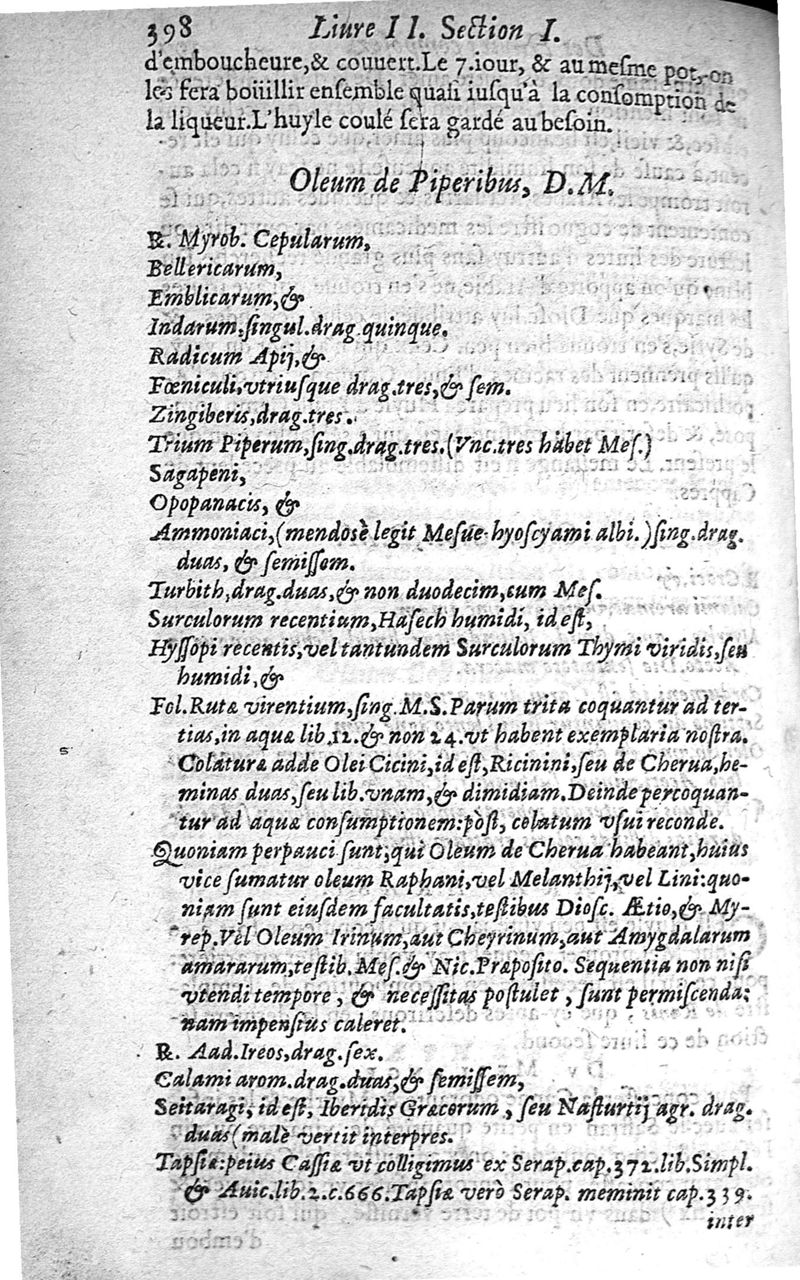 398 Liure II. Section I.
d'emboucheure,& couuert.Le 7.iour, & au mesme pot,on
les fera boüillir ensemble quasi iusqu'à la consomption de
la liqueur.L'huyle coulé sera gardé au besoin.
Oleum de Piperibus, D.M.
℞. Myrob. Cepularum,
Bellericarum,
Emblicarum,&
Indarum,singul.drag.quinque.
Radicum Apij,&
Fœniculi,vtriusque drag.tres,& sem.
Zingiberis,drag.tres.
Trium Piperum,sing.drag.tres.(Vnc.tres habet Mes.)
Sagapeni,
Opopanacis, &
Ammoniaci,(mendosè legit Mesue hyoscyami albi.)sing.drag.
duas, & semissem.
Turbith,drag.duas,& non duodecim,cum Mes.
Surculorum recentium,Hasech humidi, id est,
Hyssopi recentis,vel tantundem Surculorum Thymi viridis,seu
humidi,&
Fol.Rutæ virentium,sing.M.S.Parum trita coquantur ad ter-
tias,in aquæ lib.12.& non 24.vt habent exemplaria nostra.
Colaturæ adde Olei Cicini,id est,Ricinini,seu de Cherua,he-
minas duas,seu lib.vnam,& dimidiam.Deinde percoquan-
tur ad aquæ consumptionem:pòst, colatum vsui reconde.
Quoniam perpauci sunt,qui Oleum de Cherua habeant,huius
vice sumatur oleum Raphani,vel Melanthij,vel Lini:quo-
niam sunt eiusdem facultatis,testibus Diosc. Ætio,& My-
rep.Vel Oleum Irinum,aut Cheyrinum,aut Amygdalarum
amararum,testib.Mes.& Nic.Præposito. Sequentia non nisi
vtendi tempore, & necessitas postulet, sunt permiscenda:
nam impensius caleret.
℞. Aad.Ireos,drag.sex.
Calami arom.drag.duas,& semissem,
Seitaragi, id est, Iberidis Græcorum, seu Nasturtij agr. drag.
duas(malè vertit interpres.
Tapsiæ:peius Cassiæ vt colligimus ex Serap.cap.372.lib.Simpl.
& Auic.lib.2.c.666.Tapsiæ verò Serap. meminit cap.339.
inter